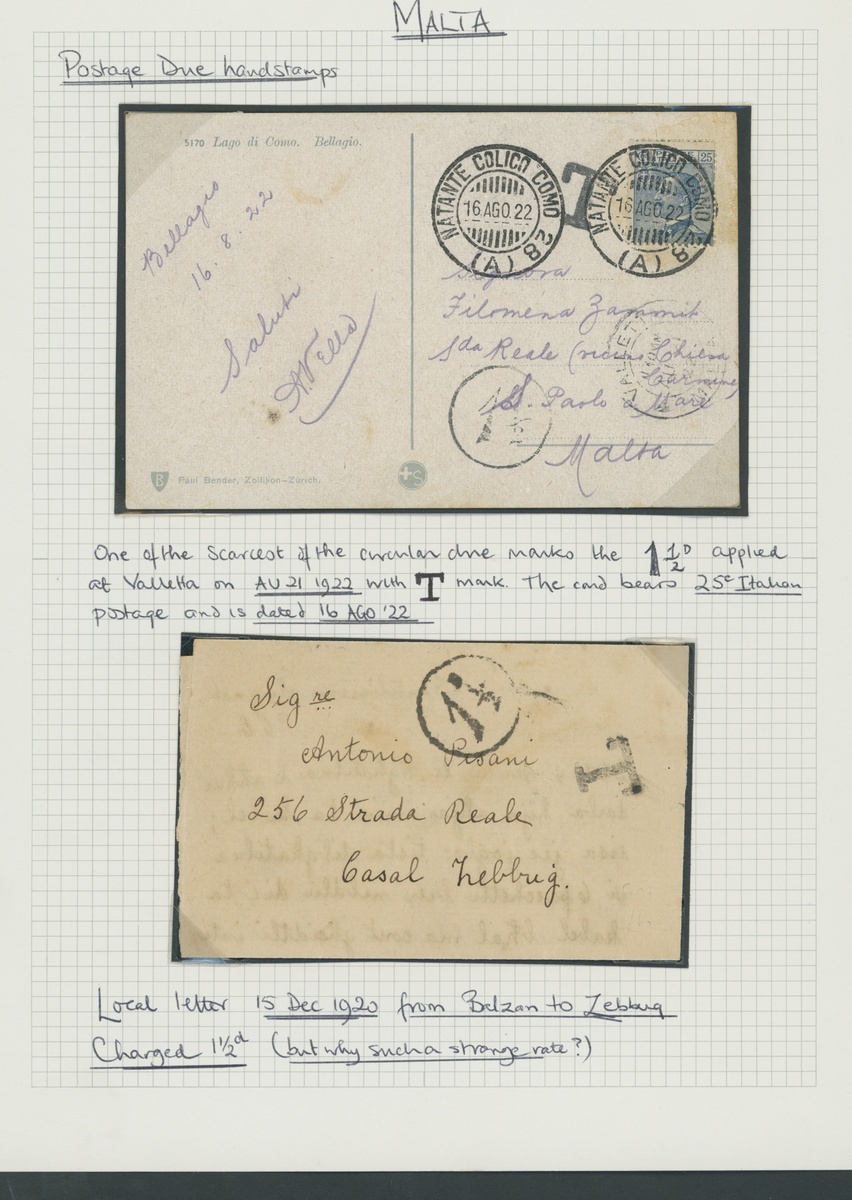 MALTA
Postage Due handstamps
5170 Lago di Como. Bellagio.
25
NATANTE COLICO COMO
16 AGO 22
(A) 82
T
NATANTE COLICO COMO
16 AGO. 22
(A) 82
Bellagio
16. 8. 22
Saluti
AVella
Signora
Filomena Zammit
Sda Reale (vicino Chiesa
Carmine)
S. Paolo a Mare
Malta
Paul Bender, Zollikon-Zürich.
One of the Scarcest of the circular due marks the 1 1/2 D applied
at Valletta on AU 21 1922 with T mark. The card bears 25c Italian
postage and is dated 16 AGO '22
1 1/2
Sig re
Antonio Pisani
T
256 Strada Reale
Casal Zebbug.
Local letter 15 Dec 1920 from Balzan to Zebbug
Charged 1 1/2 d (but why such a strange rate?)